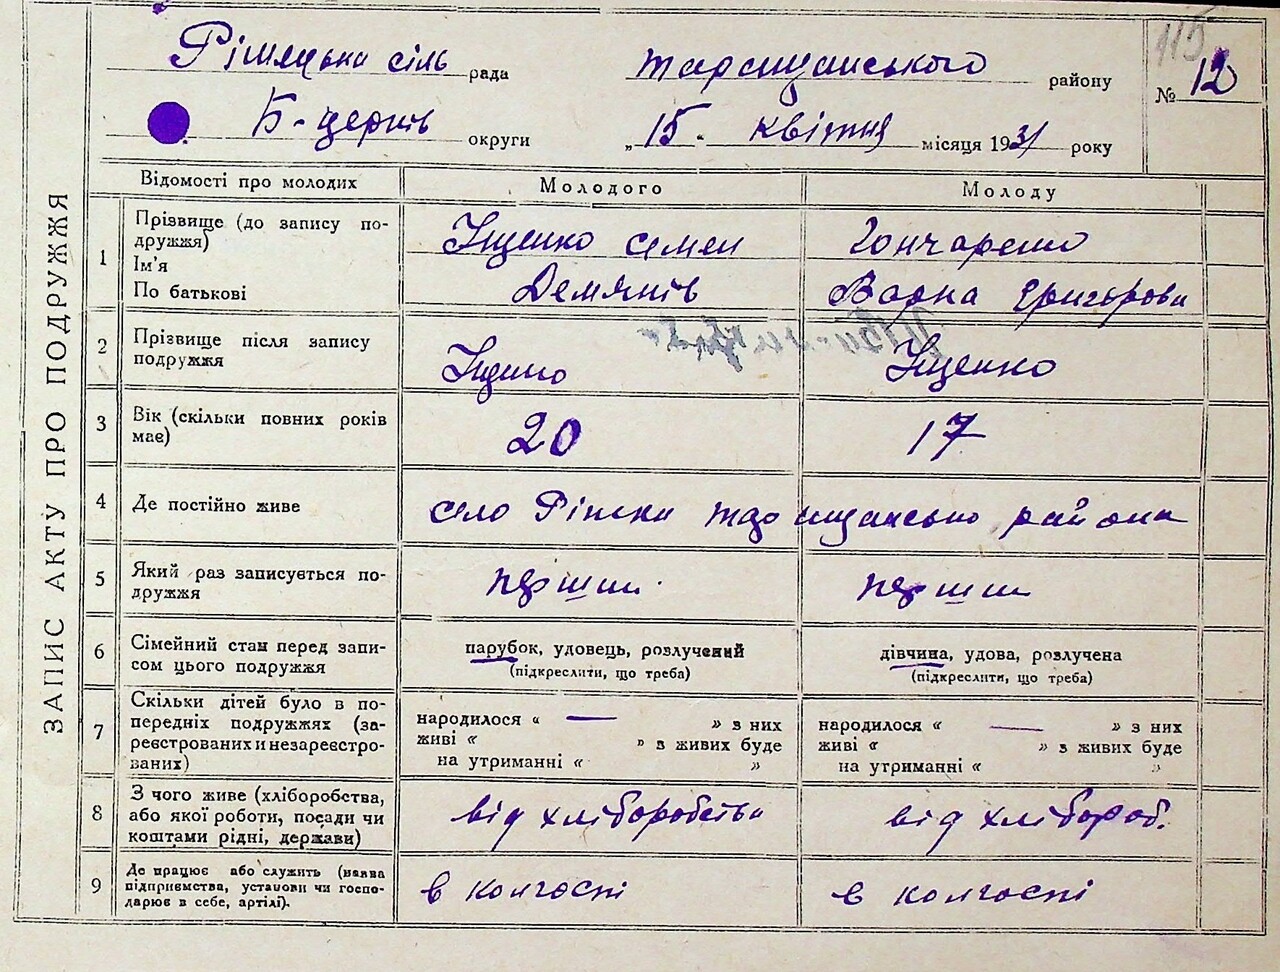 ЗАПИС АКТУ ПРО ПОДРУЖЖЯ
сіль рада Таращанського району № 12
115
Б-церків округи „15." квітня місяця 1931 року
Відомості про молодих Молодого Молоду
1 Прізвище (до запису подружжя) Іщенко Семен Гончаренко
Ім'я
По батькові Демянів Варка Григорова
2 Прізвище після запису подружжя Іщенко Іщенко
3 Вік (скільки повних років має) 20 17
4 Де постійно живе село Ріпки района
5 Який раз записується подружжя перший перший
6 Сімейний стан перед записом цього подружжя парубок, удовець, розлучений дівчина, удова, розлучена
(підкреслити, що треба) (підкреслити, що треба)
7 Скільки дітей було в попередніх подружжях (зареєстрованих и незареєстрованих) народилося « — » з них народилося « — » з них
живі « » з живих буде живі « » з живих буде
на утриманні « » на утриманні « »
8 З чого живе (хліборобства, або якої роботи, посади чи коштами рідні, держави) від хліборобства від хлібороб.
9 Де працює або служить (назва підприємства, установи чи господарює в себе, артілі). в колгоспі в колгоспі